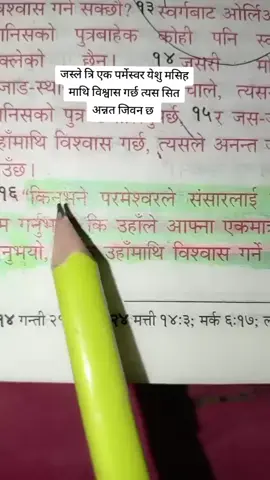 श्वास गर्न सक्छौ? १३ स्वर्गबाट ओर्लि
निसको पुत्रबाहेक कोही पनि स्व
क्लेको छैन। १४ जसरी
जस्ले त्रि एक पर्मेस्वर येशु मसिह
माथि विश्वास गर्छ त्यस सित
अन्नत जिवन छ
निसको पुत्र गर्छ, १५ र जस-ज
हाँमाथि विश्वास गर्छ, त्यसले अनन्त ज
उँछ।
१६ “किनभने परमेश्वरले संसारलाई
म कि उहाँले आफ्ना एकमात्र
नुभयो, उहाँमाथि विश्वास गर्ने
१४ गन्ती २ २४ मत्ती १४:३; मर्क ६:१७; लू